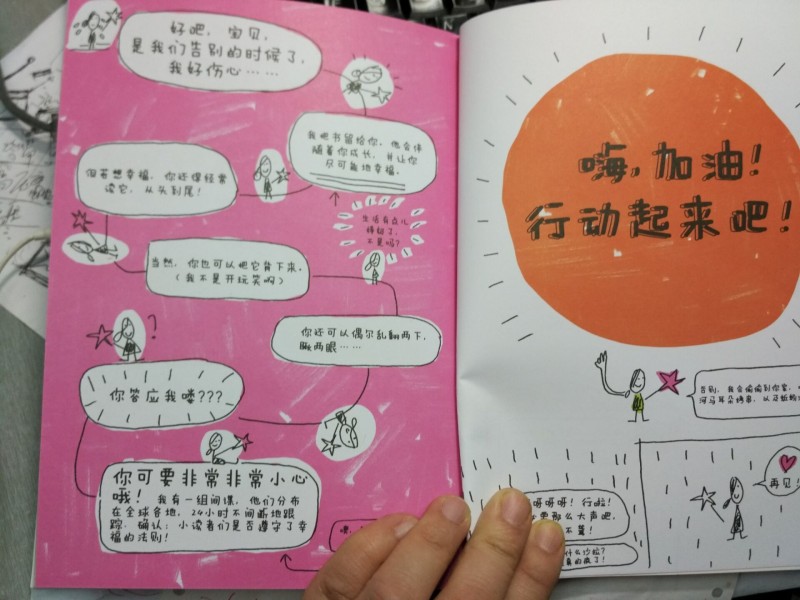 好吧，宝贝，
是我们告别的时候了，
我好伤心……
我把书留给你，他会伴
随着你成长，并让你
尽可能地幸福。
但若想幸福，你还得经常
读它，从头到尾！
生活有点儿
棒极了，
不是吗？
当然，你也可以把它背下来。
（我不是开玩笑啊）
你还可以偶尔乱翻两下，
瞅两眼……
?
你答应我喽???
你可要非常非常小心
哦！我有一组间谍，他们分布
在全球各地，24小时不间断地跟
踪，确认，小读者们是否遵守了幸
福的法则！
嗨，加油！
行动起来吧！
告别，我会偷偷到你家，
河马耳朵烤串，以及
再见！
呀呀呀！行啦！
那么大声吧，
不聋！
什么沙拉？
真的疯了！